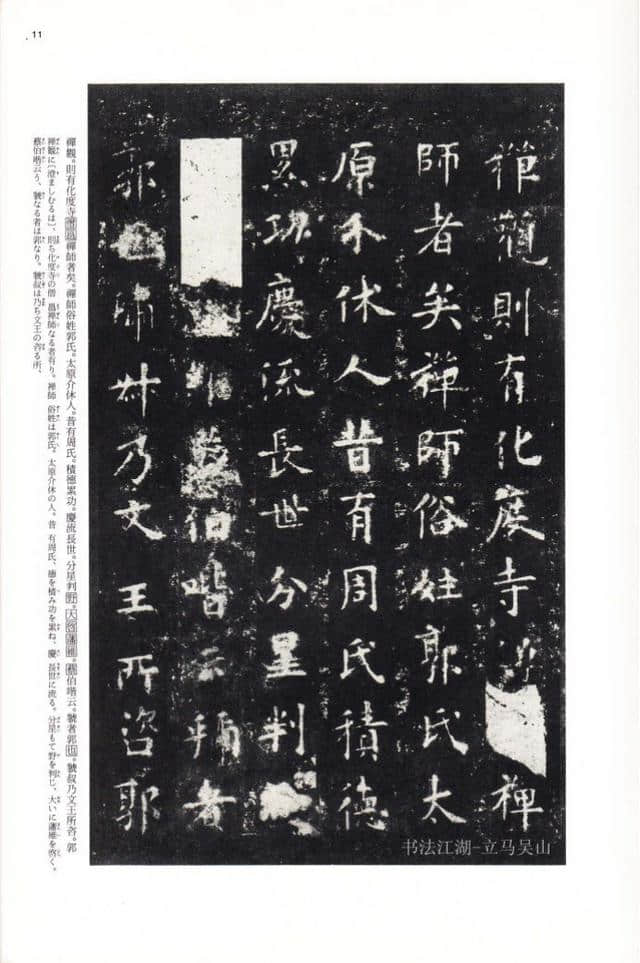 11
禪觀則有化度寺禪
師者矣禪師俗姓郭氏太
原介休人昔有周氏積德
累功慶流長世分星判
維蔡伯喈云虢者
郭也虢叔乃文王所咨郭
禪觀。則有化度寺僧邕禪師者矣。禪師俗姓郭氏。太原介休人。昔有周氏。積德累功。慶流長世。分星判野。大啓藩維。蔡伯喈云。虢者郭也。虢叔乃文王所咨。郭
禅観に〔澄ましむるは〕、則ち化度寺の僧 邕禅師なる者有り。禅師 俗姓は郭氏。太原介休の人。昔 有周氏、徳を積み功を累ね、慶 長世に流る。分星もて野を判じ、大いに藩維を啓く。
蔡伯喈云う、虢なる者は郭なり。虢叔は乃ち文王の咨る所、
书法江湖-立马吴山